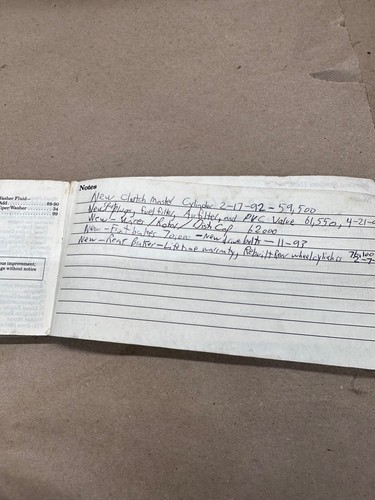 Washer Fluid—
Add . . . . . . . . . . 89-90
Wiper/Washer . . . . . . . . 34
99
ous improvement;
ge without notice
Notes
New Clutch Master Cylinder 2-17-92 - 59,500
New Plugs, fuel filter, Air filter, and PVC Valve 61,550, 4-21-
New - Wires / Rotor / Dist Cap 62000
New - Front brakes 70,000 - New belts - 11-93
New - Rear Brakes - Lifetime warranty, Rebuilt Rear wheel cylinders
2-7